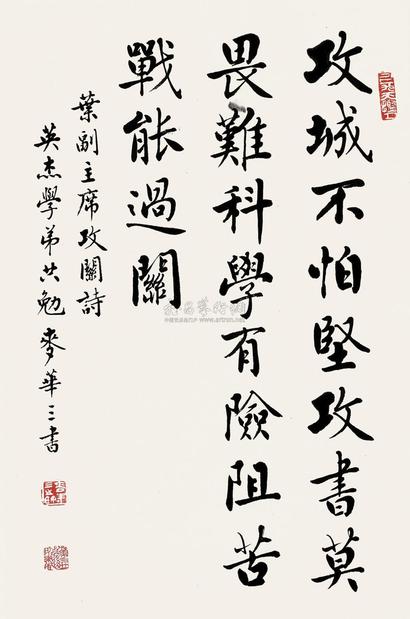 攻城不怕堅攻書莫
畏難科學有險阻苦
戰能過關
葉副主席攻關詩
英杰學弟共勉 麥華三書